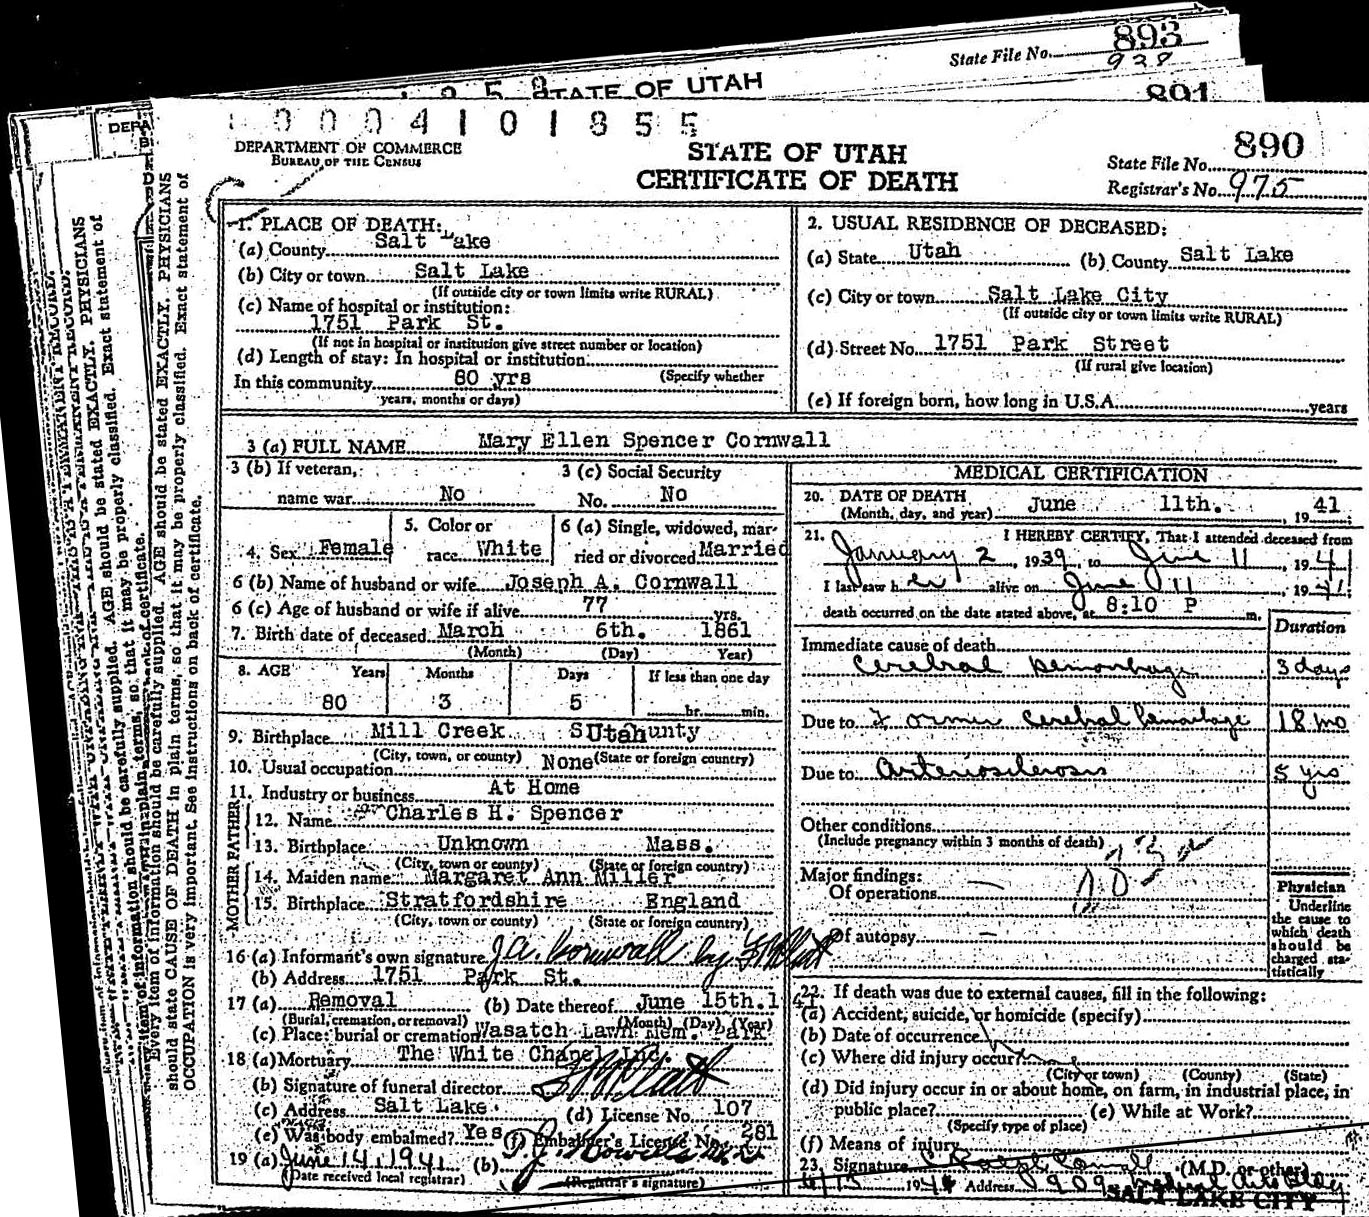 893
State File No.
928
STATE OF UTAH
891
890
DEPARTMENT OF COMMERCE
BUREAU OF THE CENSUS
STATE OF UTAH
CERTIFICATE OF DEATH
State File No.
Registrar's No. 975
1. PLACE OF DEATH:
(a) County Salt Lake
(b) City or town Salt Lake
(If outside city or town limits write RURAL)
(c) Name of hospital or institution:
1751 Park St.
(If not in hospital or institution give street number or location)
(d) Length of stay: In hospital or institution
In this community 80 yrs (Specify whether
years, months or days)
2. USUAL RESIDENCE OF DECEASED:
(a) State Utah (b) County Salt Lake
(c) City or town Salt Lake City
(If outside city or town limits write RURAL)
(d) Street No. 1751 Park Street
(If rural give location)
(e) If foreign born, how long in U.S.A. years
3 (a) FULL NAME Mary Ellen Spencer Cornwall
3 (b) If veteran, name war No
3 (c) Social Security No. No
4. Sex Female
5. Color or race White
6 (a) Single, widowed, married or divorced Married
6 (b) Name of husband or wife Joseph A. Cornwall
6 (c) Age of husband or wife if alive 77 yrs.
7. Birth date of deceased March 6th. 1861
(Month) (Day) Year)
8. AGE Years Months Days If less than one day
80 3 5 hr. min.
9. Birthplace Mill Creek Utah
(City, town, or county) (State or foreign country)
10. Usual occupation None
11. Industry or business At Home
FATHER
12. Name Charles H. Spencer
13. Birthplace Unknown Mass.
(City, town or county) (State or foreign country)
MOTHER
14. Maiden name Margaret Ann Miller
15. Birthplace Stratfordshire England
(City, town or county) (State or foreign country)
16 (a) Informant's own signature J.A. Cornwall by
(b) Address 1751 Park St.
17 (a) Removal (b) Date thereof June 15th. 1941
(Burial, cremation, or removal) (Month) (Day) (Year)
(c) Place: burial or cremation Wasatch Lawn Mem. Park
18 (a) Mortuary The White Chapel Inc.
(b) Signature of funeral director
(c) Address Salt Lake. (d) License No. 107
(e) Was body embalmed? Yes (f) Embalmer's License No. 281
19 (a) June 14, 1941 (b)
(Date received local registrar) (Registrar's signature)
MEDICAL CERTIFICATION
20. DATE OF DEATH
(Month, day, and year) June 11th. , 1941
21. I HEREBY CERTIFY, That I attended deceased from
January 2, 1939, to June 11, 1941
I last saw her alive on June 11, 1941;
death occurred on the date stated above, at 8:10 P m.
Duration
Immediate cause of death
Cerebral hemorrhage 3 days
Due to Former cerebral hemorrhage 18 mo
Due to Arteriosclerosis 5 yrs
Other conditions
(Include pregnancy within 3 months of death)
Major findings:
Of operations
Of autopsy
Physician
Underline
the cause to
which death
should be
charged sta-
tistically
22. If death was due to external causes, fill in the following:
(a) Accident, suicide, or homicide (specify)
(b) Date of occurrence
(c) Where did injury occur?
(City or town) (County) (State)
(d) Did injury occur in or about home, on farm, in industrial place, in
public place? (e) While at Work?
(Specify type of place)
(f) Means of injury
23. Signature (M.D. or other)
Address 909 Medical Arts Bldg
SALT LAKE CITY
Every item of information should be carefully supplied. AGE should be stated EXACTLY. PHYSICIANS
should state CAUSE OF DEATH in plain terms, so that it may be properly classified. Exact statement of
OCCUPATION is very important. See instructions on back of certificate.